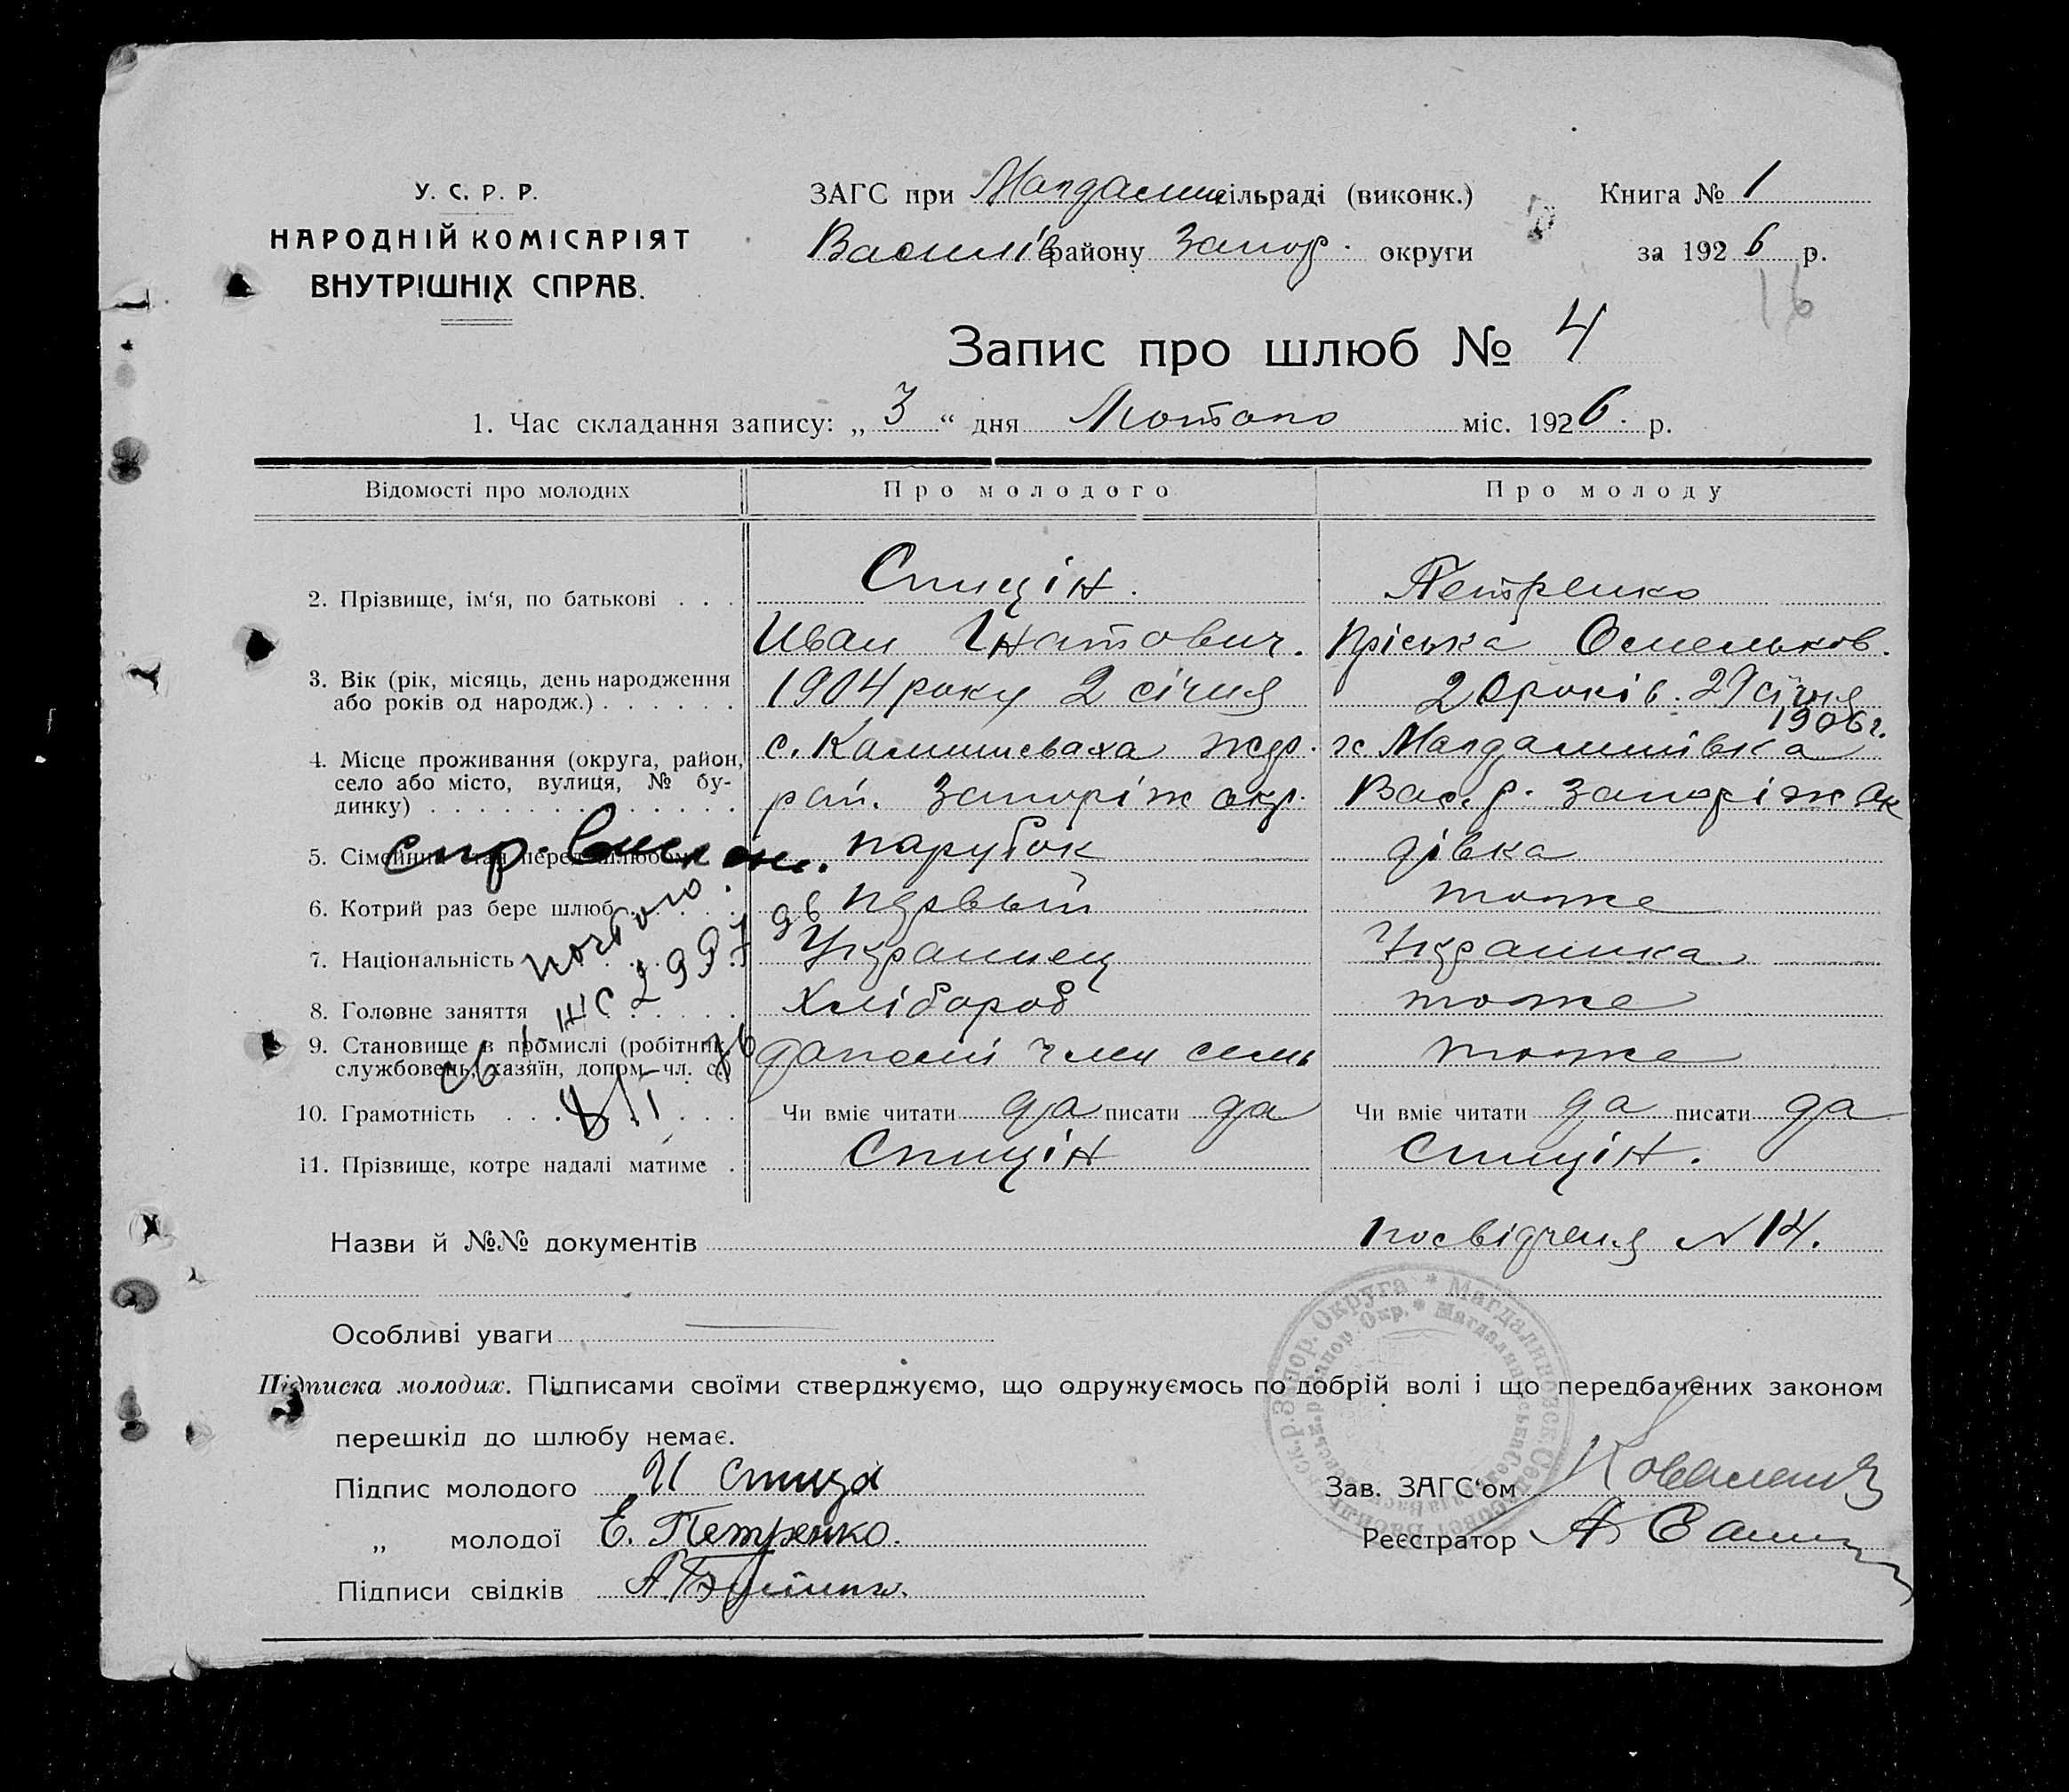 У. С. Р. Р.
НАРОДНІЙ КОМІСАРІЯТ
ВНУТРІШНІХ СПРАВ.
ЗАГС при Магдалин сільраді (виконк.) Книга № 1
Василів району Запор. округи за 1926 р.
16
Запис про шлюб № 4
1. Час складання запису: „3“ дня Лютого міс. 1926. р.
Відомості про молодих Про молодого Про молоду
2. Прізвище, ім‘я, по батькові . . . Спицін. Петренко
Иван Игнатович. Пріська Омельков.
3. Вік (рік, місяць, день народження або років од народж.) . . . . . . 1904 року 2 січня 20 років. 29 січня 1906 г.
4. Місце проживання (округа, район, село або місто, вулиця, № будинку) . . . с. Камишеваха жер. рай. Запоріж окр. с Магдалинівка Вас. р. Запоріж Ок
5. Сімейний стан перед шлюбом парубок дівка
6. Котрий раз бере шлюб первый тоже
7. Національність Украинец Украинка
8. Головне заняття Хлібороб тоже
9. Становище в промислі (робітник, службовець, хазяїн, допом. чл. с.) член семь тоже
10. Грамотність . . . Чи вміє читати да писати да Чи вміє читати да писати да
11. Прізвище, котре надалі матиме . Спицін Спицін.
Назви й №№ документів Посвідченя N 14.
Особливі уваги
Підписка молодих. Підписами своїми стверджуємо, що одружуємось по добрій волі і що передбачених законом
перешкід до шлюбу немає.
Підпис молодого И Спица Зав. ЗАГС‘ом
„ молодої Е. Петренко. Реєстратор А
Підписи свідків А